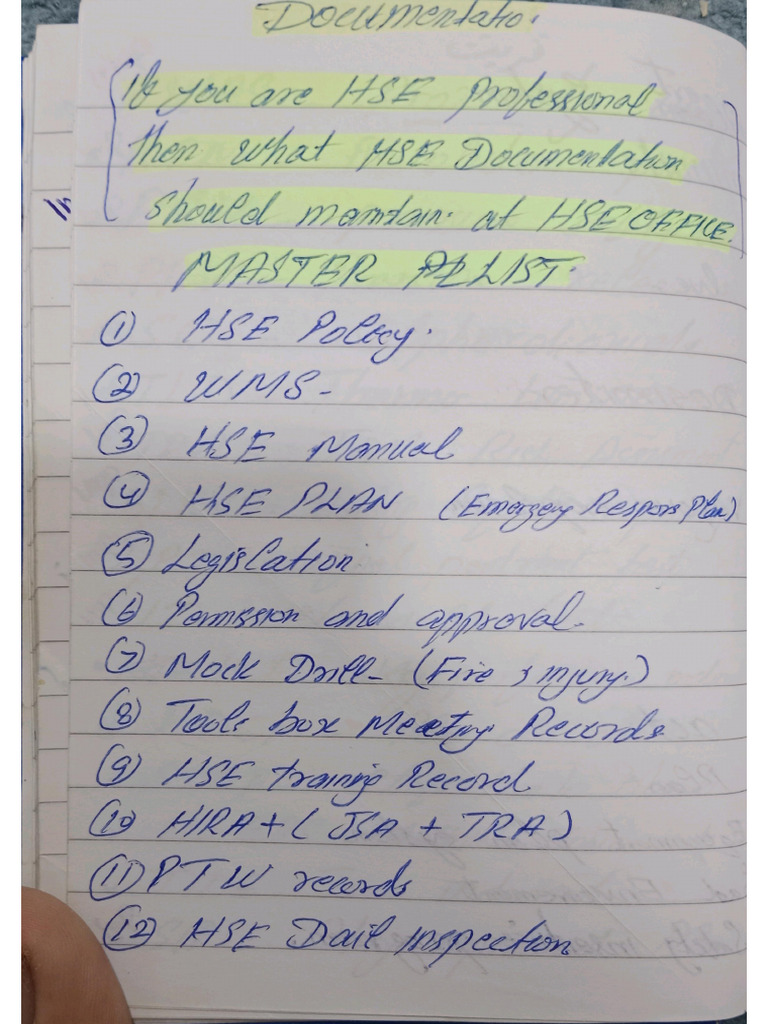 Documentatio.
If you are HSE Professional
then what HSE Documentation
should maintain. at HSE OFFICE.
MASTER LIST.
① HSE Policy.
② WMS-
③ HSE Manual
④ HSE PLAN (Emergecy Respons Plan)
⑤ Legislation
⑥ Permission and approval.
⑦ Mock Drill- (Fire & injury.)
⑧ Tools box Meeting Records
⑨ HSE training Record
⑩ HIRA + ( JSA + TRA )
⑪ PTW records
⑫ HSE Dail inspection